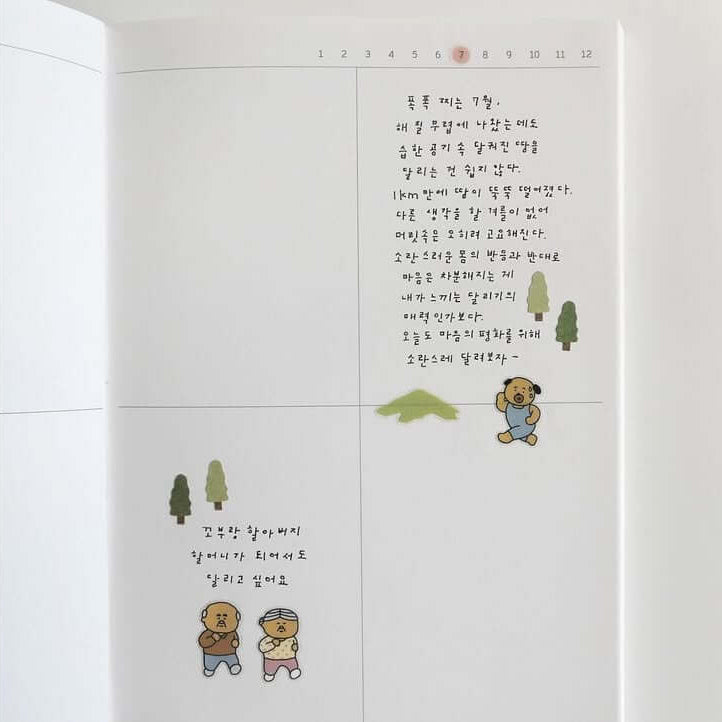 1 2 3 4 5 6 7 8 9 10 11 12
푹푹 찌는 7월,
해 질 무렵에 나왔는데도
습한 공기 속 달궈진 땅을
달리는 건 쉽지 않다.
1km 만에 땀이 뚝뚝 떨어졌다.
다른 생각을 할 겨를이 없어
머릿속은 오히려 고요해진다.
소란스러운 몸의 반응과 반대로
마음은 차분해지는 게
내가 느끼는 달리기의
매력인가보다.
오늘도 마음의 평화를 위해
소란스레 달려보자~
꼬부랑 할아버지
할머니가 되어서도
달리고 싶어요